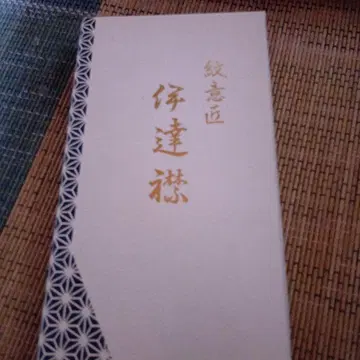 紋意匠
伊達襟